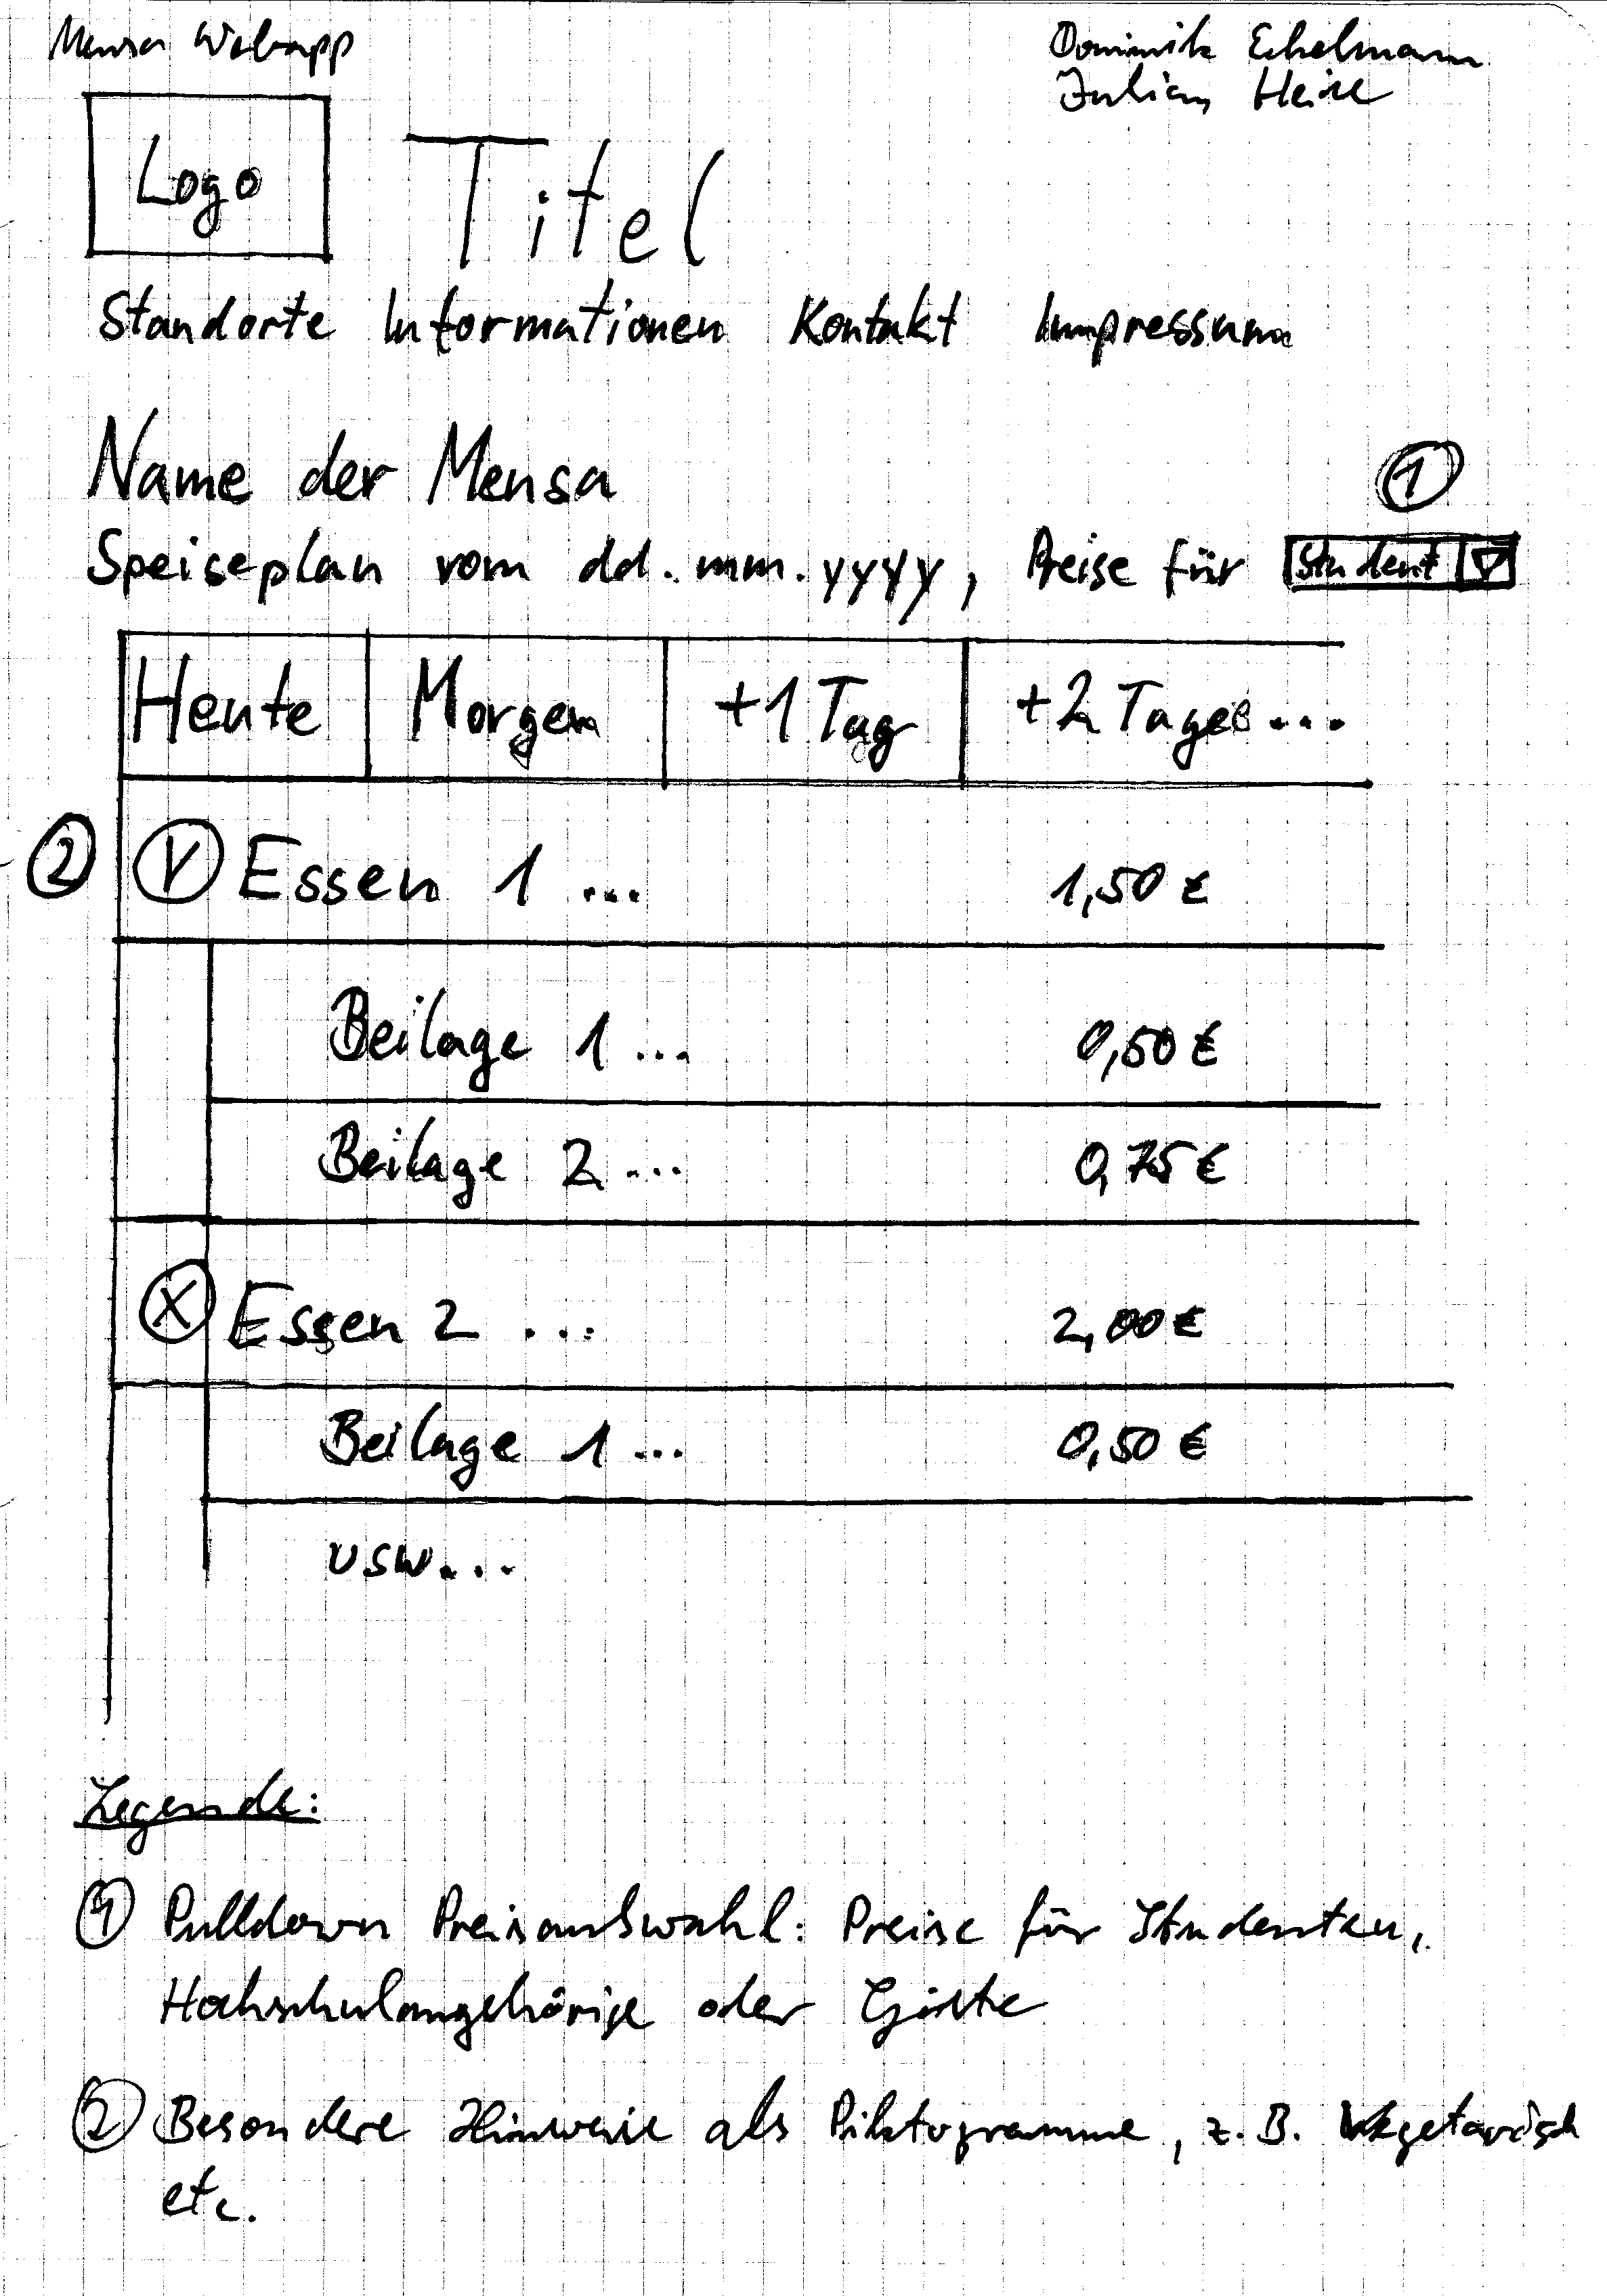 Mensa Webapp
Dominik Eckelmann
Julian Heise
Logo
Titel
Standorte Informationen Kontakt Impressum
Name der Mensa
1
Speiseplan vom dd.mm.yyyy, Preise für Student
Heute Morgen +1 Tag +2 Tage ...
2 V Essen 1 ... 1,50 €
Beilage 1 ... 0,50 €
Beilage 2 ... 0,75 €
X Essen 2 ... 2,00 €
Beilage 1 ... 0,50 €
usw...
Legende:
1 Pulldown Preisauswahl: Preise für Studenten,
Hochschulangehörige oder Gäste
2 Besondere Hinweise als Piktogramme, z.B. Vegetarisch
etc.